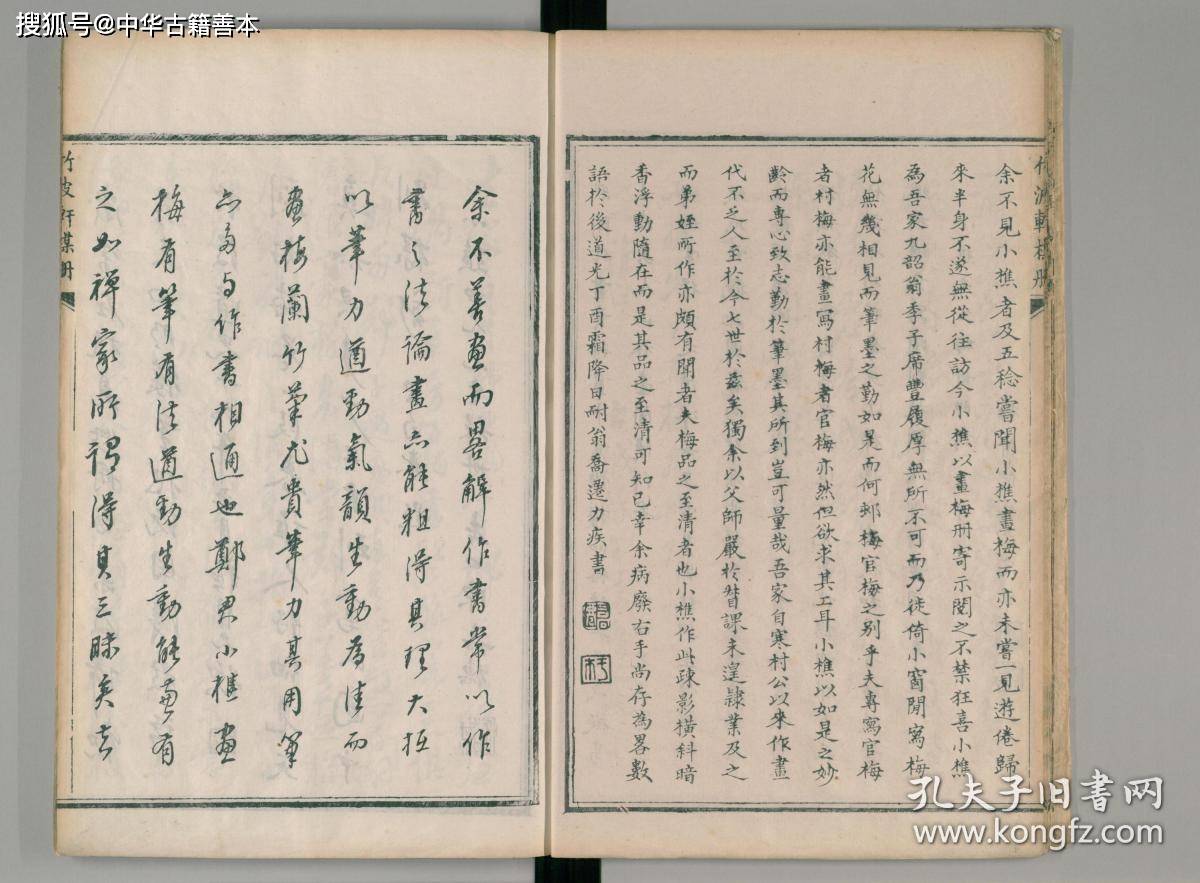 搜狐号@中华古籍善本
余不見小樵者及五稔嘗聞小樵畫梅而亦未嘗一見遊倦歸
來半身不遂無從往訪今小樵以畫梅册寄示閱之不禁狂喜小樵
為吾家九韶翁季子席豐履厚無所不可而乃徙倚小窗閒寫梅
花無幾相見而筆墨之勤如是而何邨梅官梅之別乎夫專寫官梅
者村梅亦能畫寫村梅者官梅亦然但欲求其工耳小樵以如是之妙
齡而專心致志勤於筆墨其所到豈可量哉吾家自寒村公以來作畫
代不乏人至於今七世於茲矣獨余以父師嚴於督課未遑隸業及之
而弟姪所作亦頗有聞者夫梅品之至清者也小樵作此疎影橫斜暗
香浮動隨在而是其品之至清可知已幸余病廢右手尚存為畧數
語於後道光丁酉霜降日耐翁喬遷力疾書
余不善畫而畧解作書常以作
書之法論畫亦能粗得其理大抵
以筆力遒勁氣韻生動為佳而
畫梅蘭竹菊尤貴筆力其用筆
亦多与作書相通也鄭君小樵畫
梅有筆有法遒勁生動能兼有
之如禪家所謂得其三昧矣去
竹波軒梅册
竹波軒梅册
孔夫子旧书网
www.kongfz.com